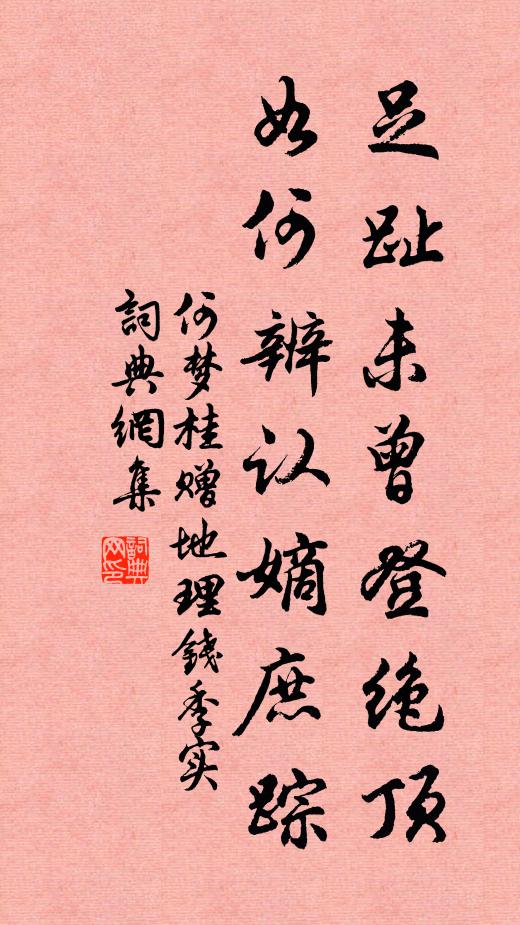 足趾未曾登绝顶
如何辨认嫡庶踪
何梦桂赠地理錢季实
詞典網集
詞典网印